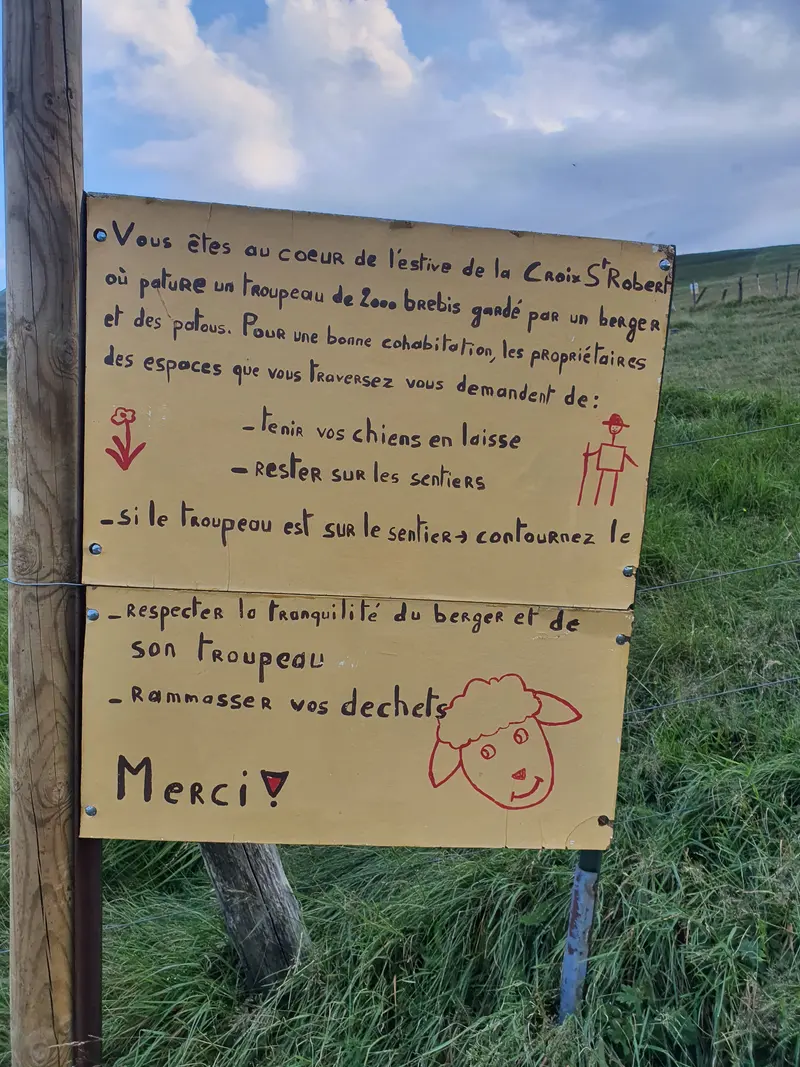 Vous êtes au coeur de l'estive de la Croix St Robert
où pature un troupeau de 2000 brebis gardé par un berger
et des patous. Pour une bonne cohabitation, les propriétaires
des espaces que vous traversez vous demandent de :
- tenir vos chiens en laisse
- rester sur les sentiers
- si le troupeau est sur le sentier → contournez le
- respecter la tranquilité du berger et de
son troupeau
- rammasser vos dechets
Merci !